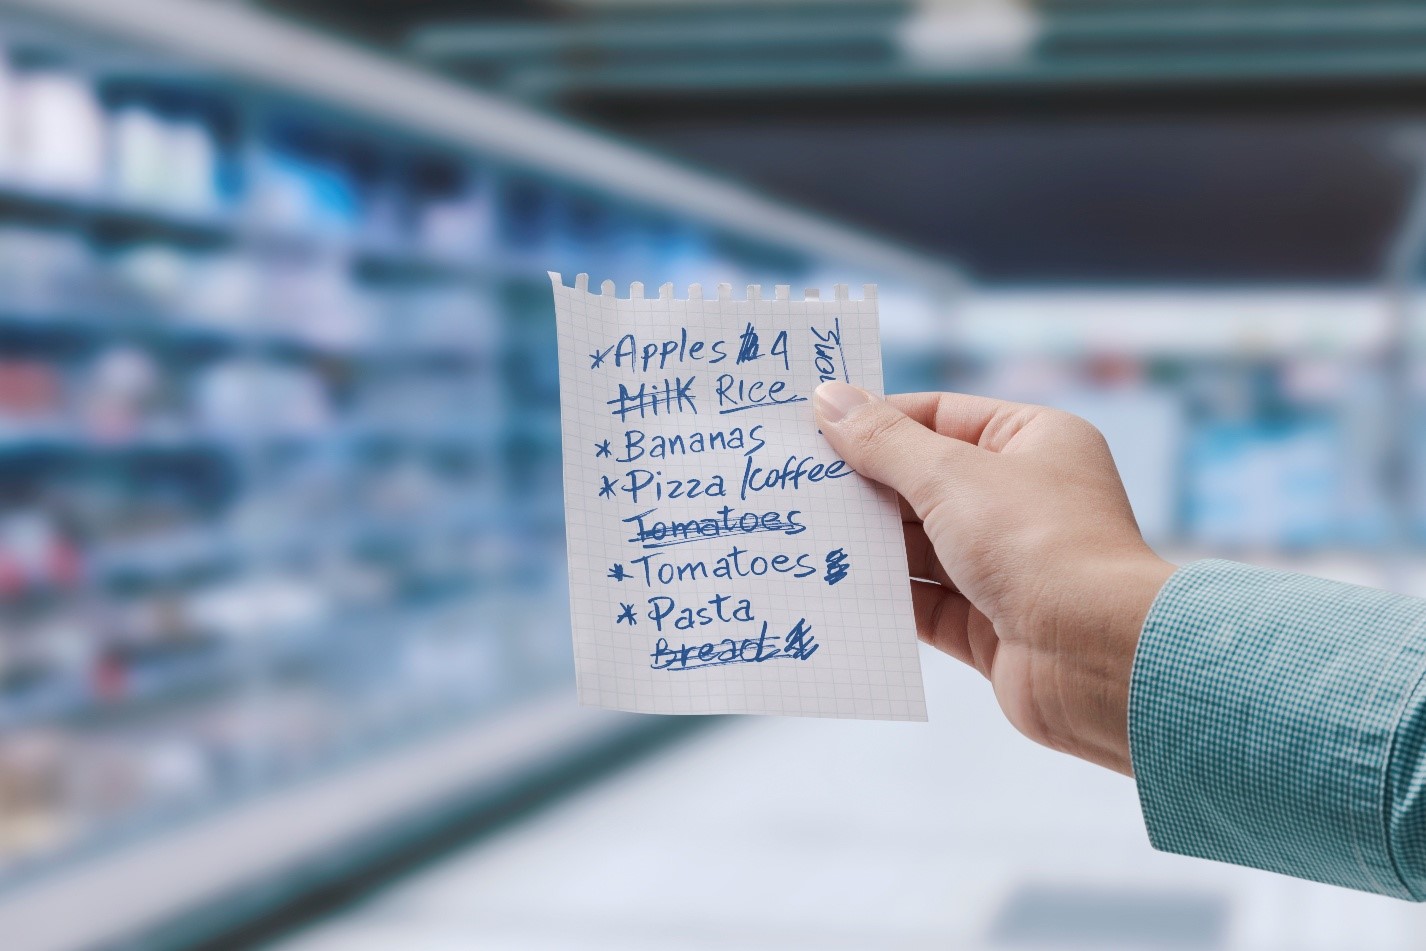 *Apples 4
Milk Rice
*Bananas
*Pizza /coffee
Tomatoes
*Tomatoes
*Pasta
Bread